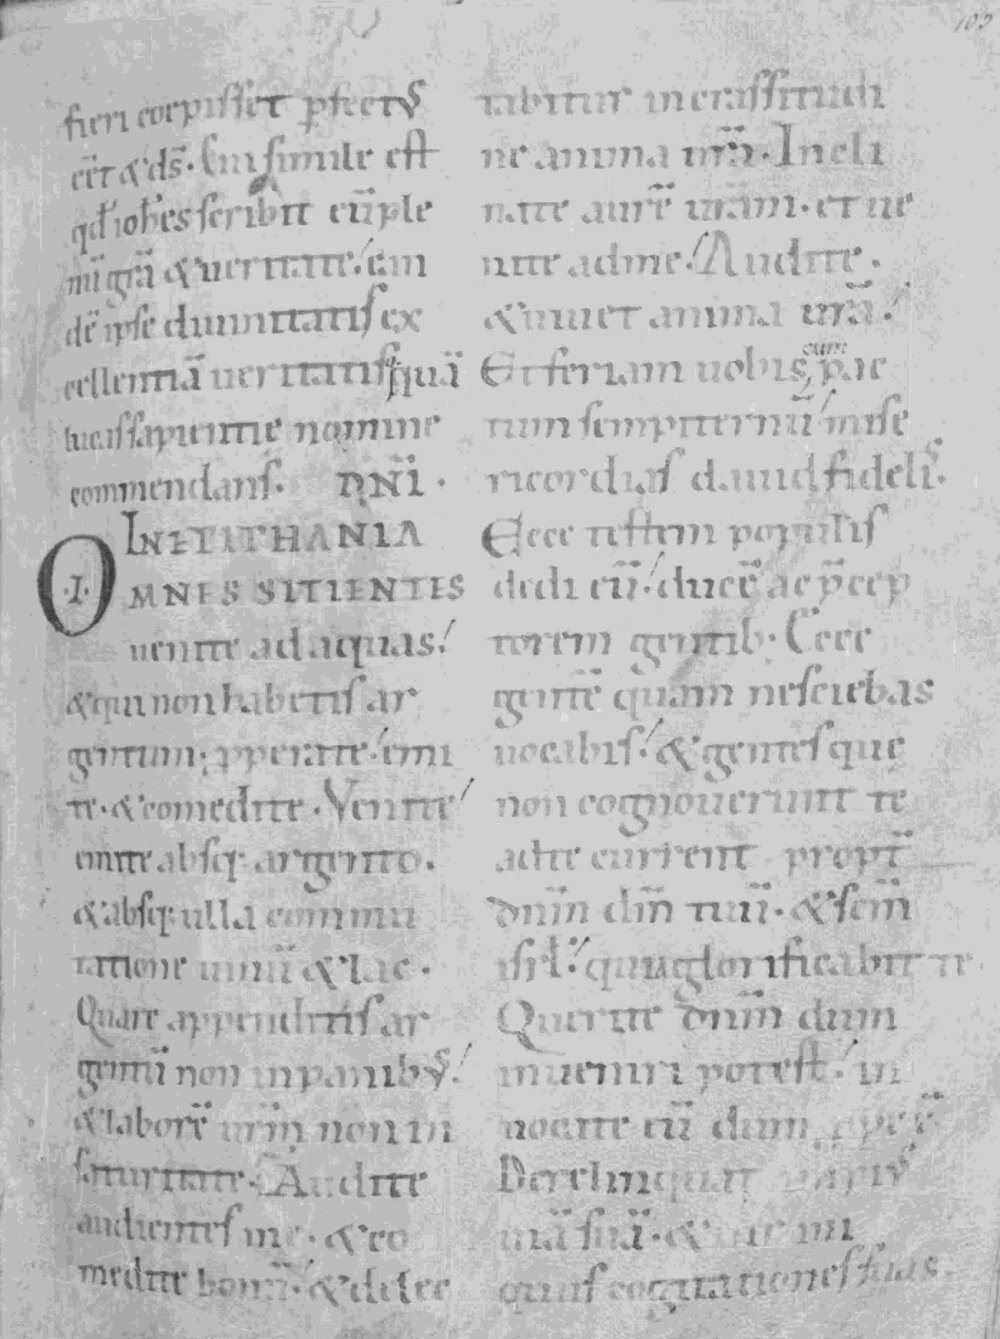 102
fieri coepisset ꝓfectꝰ
eēt & ds̄. Cui simile est
qd̄ ioh̄es scribit eū ple
nū gr̄a & ueritate. eam
dē ipse diuinitatis ex
cellentiā ueritatis quā
lucas sapientie nomine
commendans.
IN LETITHANIA DNI.
OMNES SITIENTES
.I.
uenite ad aquas.
& qui non habetis ar
gentum; ꝓperate. emi
te. & comedite. Venite
emite absq; argento.
& absq; ulla commu
tatione uinū & lac.
Quare appenditis ar
gentū non in panibꝰ.
& laborē urm̄ non in
saturitate. Audite
audientes me. & co
medite bonū. & delec
tabitur in crassitudi
ne anima ur̄a. Incli
nate aurē ur̄am. et ue
nite ad me. Audite.
& uiuet anima ur̄a.
Et feriam uobiscum pac
tum sempiternū mise
ricordias dauid fidelis.
Ecce testem populis
dedi eū. ducē ac p̄cep
torem gentib;. Ecce
gentē quam nesciebas
uocabis. & gentes que
non cognouerunt te
ad te current propt̄
dnm̄ dm̄ tuū. & scm̄
isrl̄. quia glorificabit te
Querite dnm̄ dum
inueniri potest. in
uocate eū dum ꝓpe ē
Derelinquat impiꝰ
uiā suā. & uir ini
quus cogitationes suas.